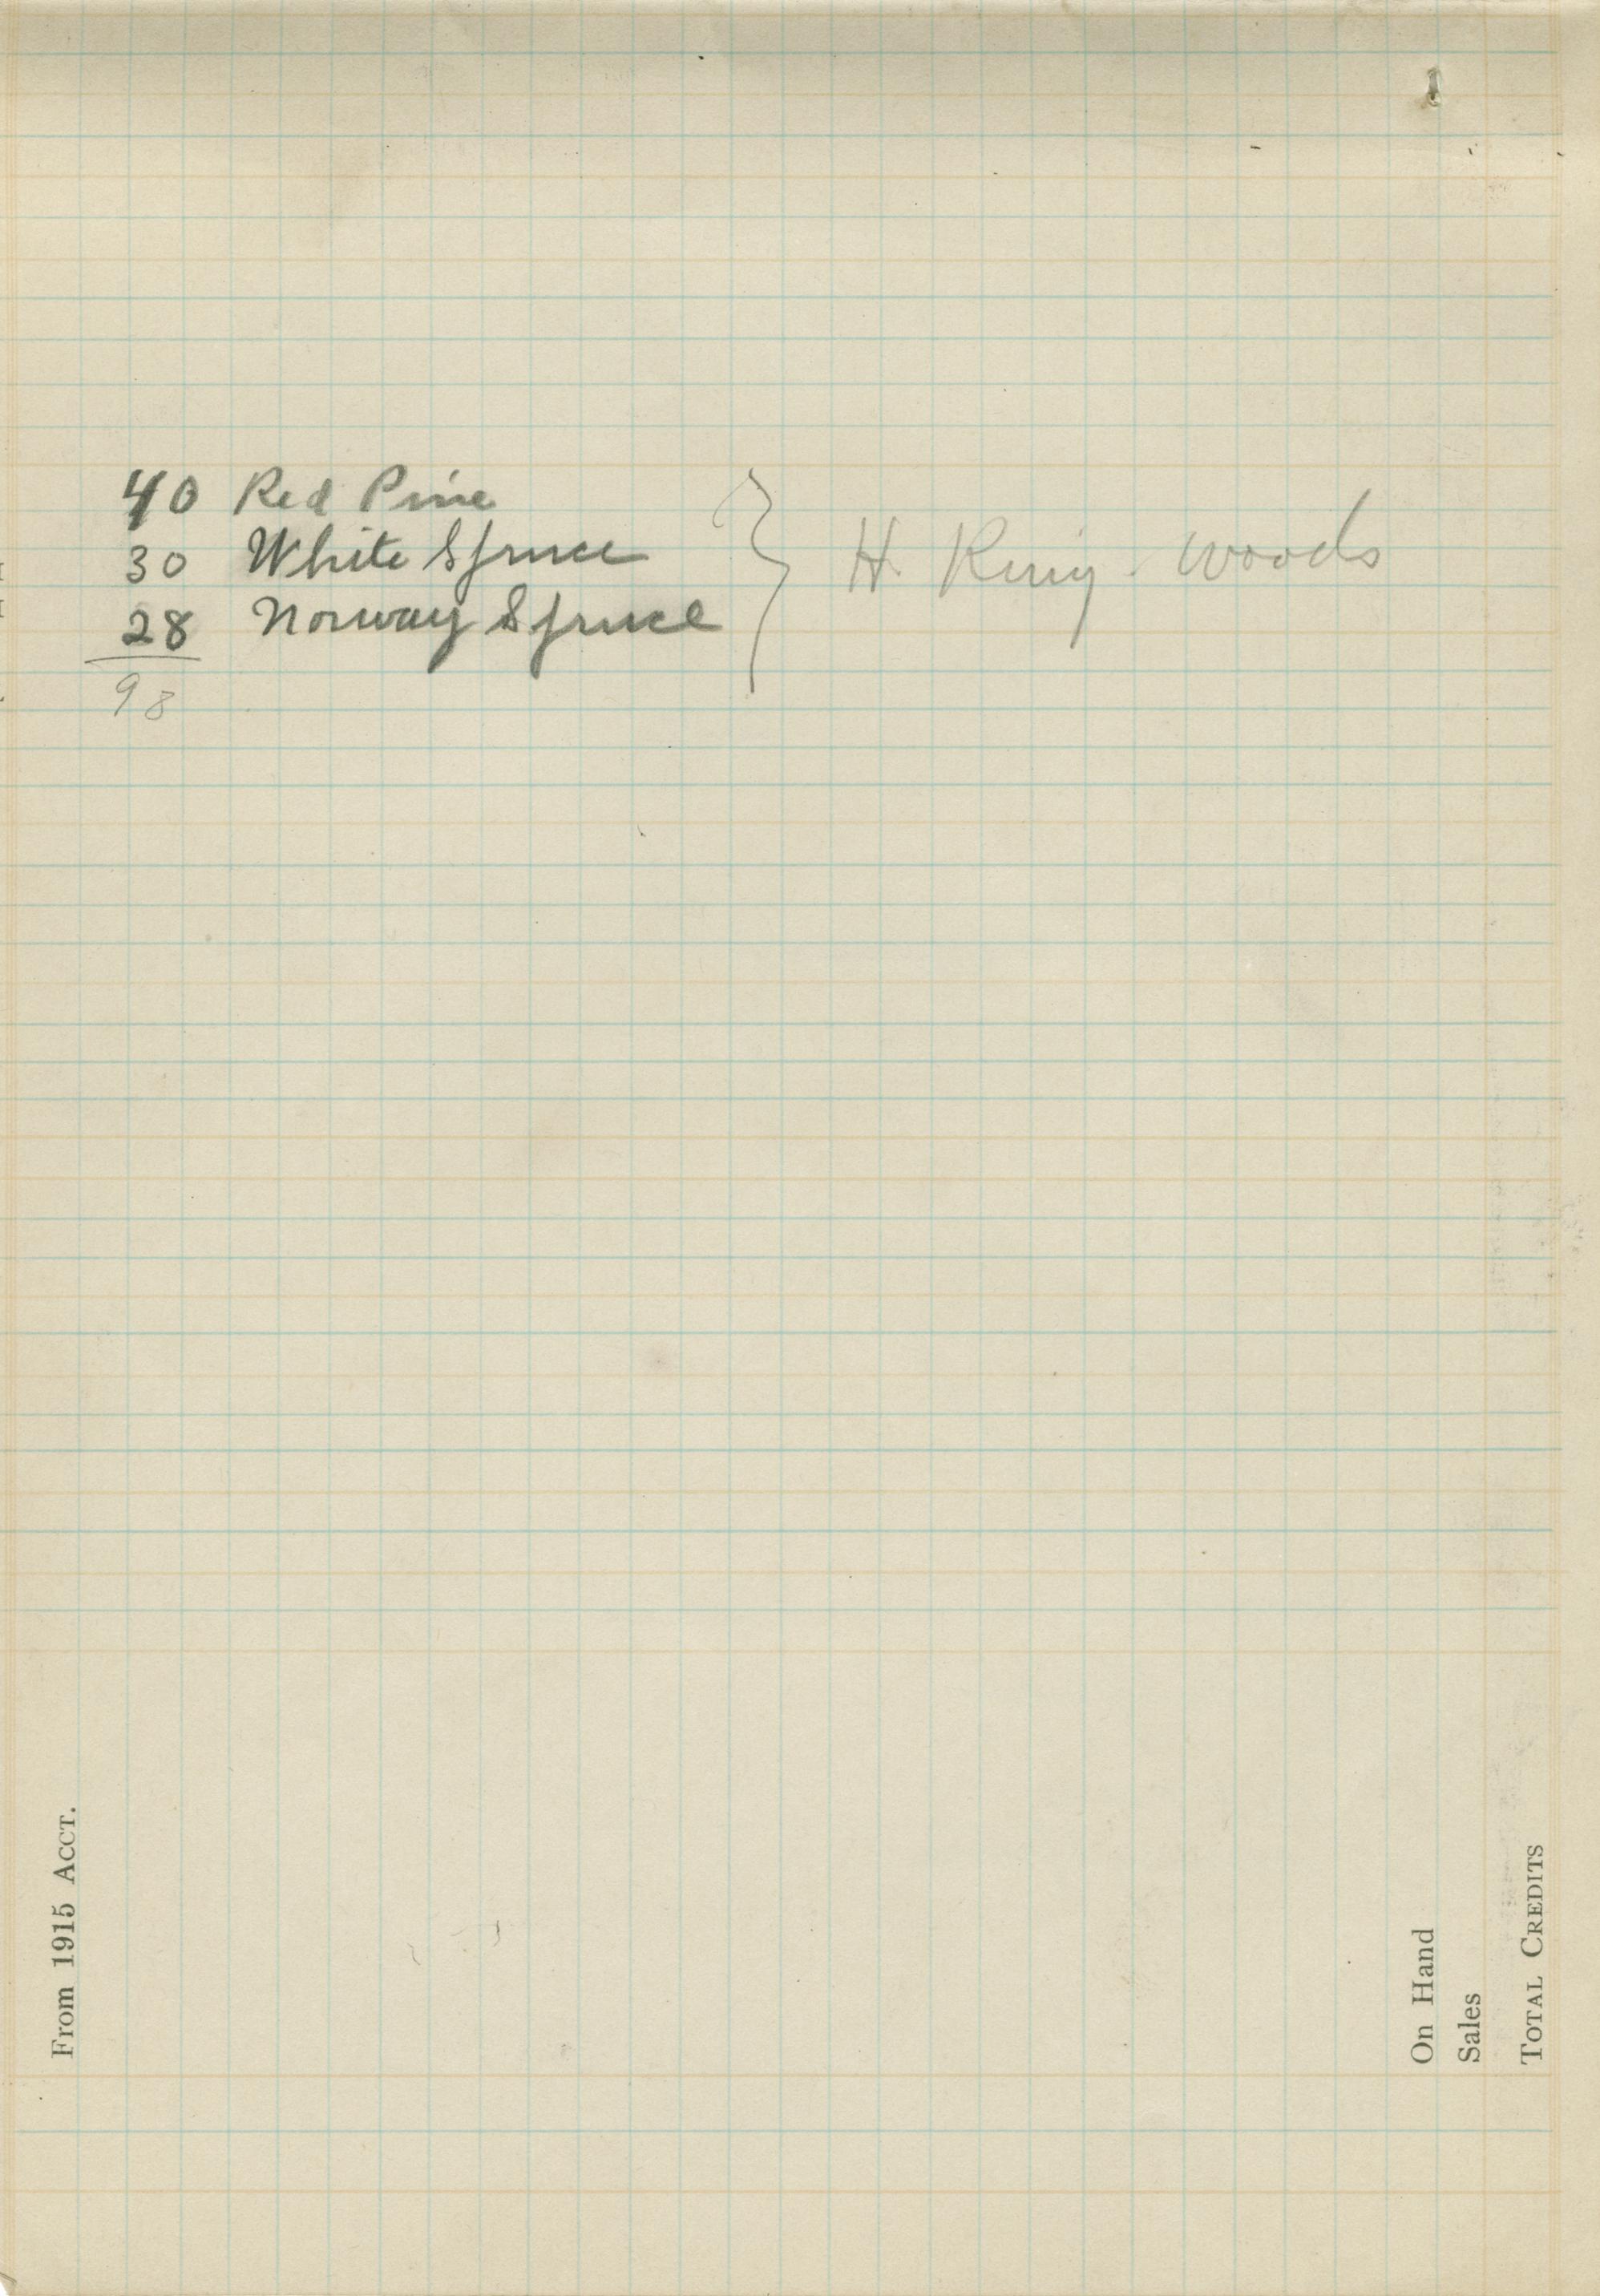 40 Red Pine
30 White Spruce
28 Norway Spruce
98
H. King woods
From 1915 Acct.
On Hand
Sales
Total Credits